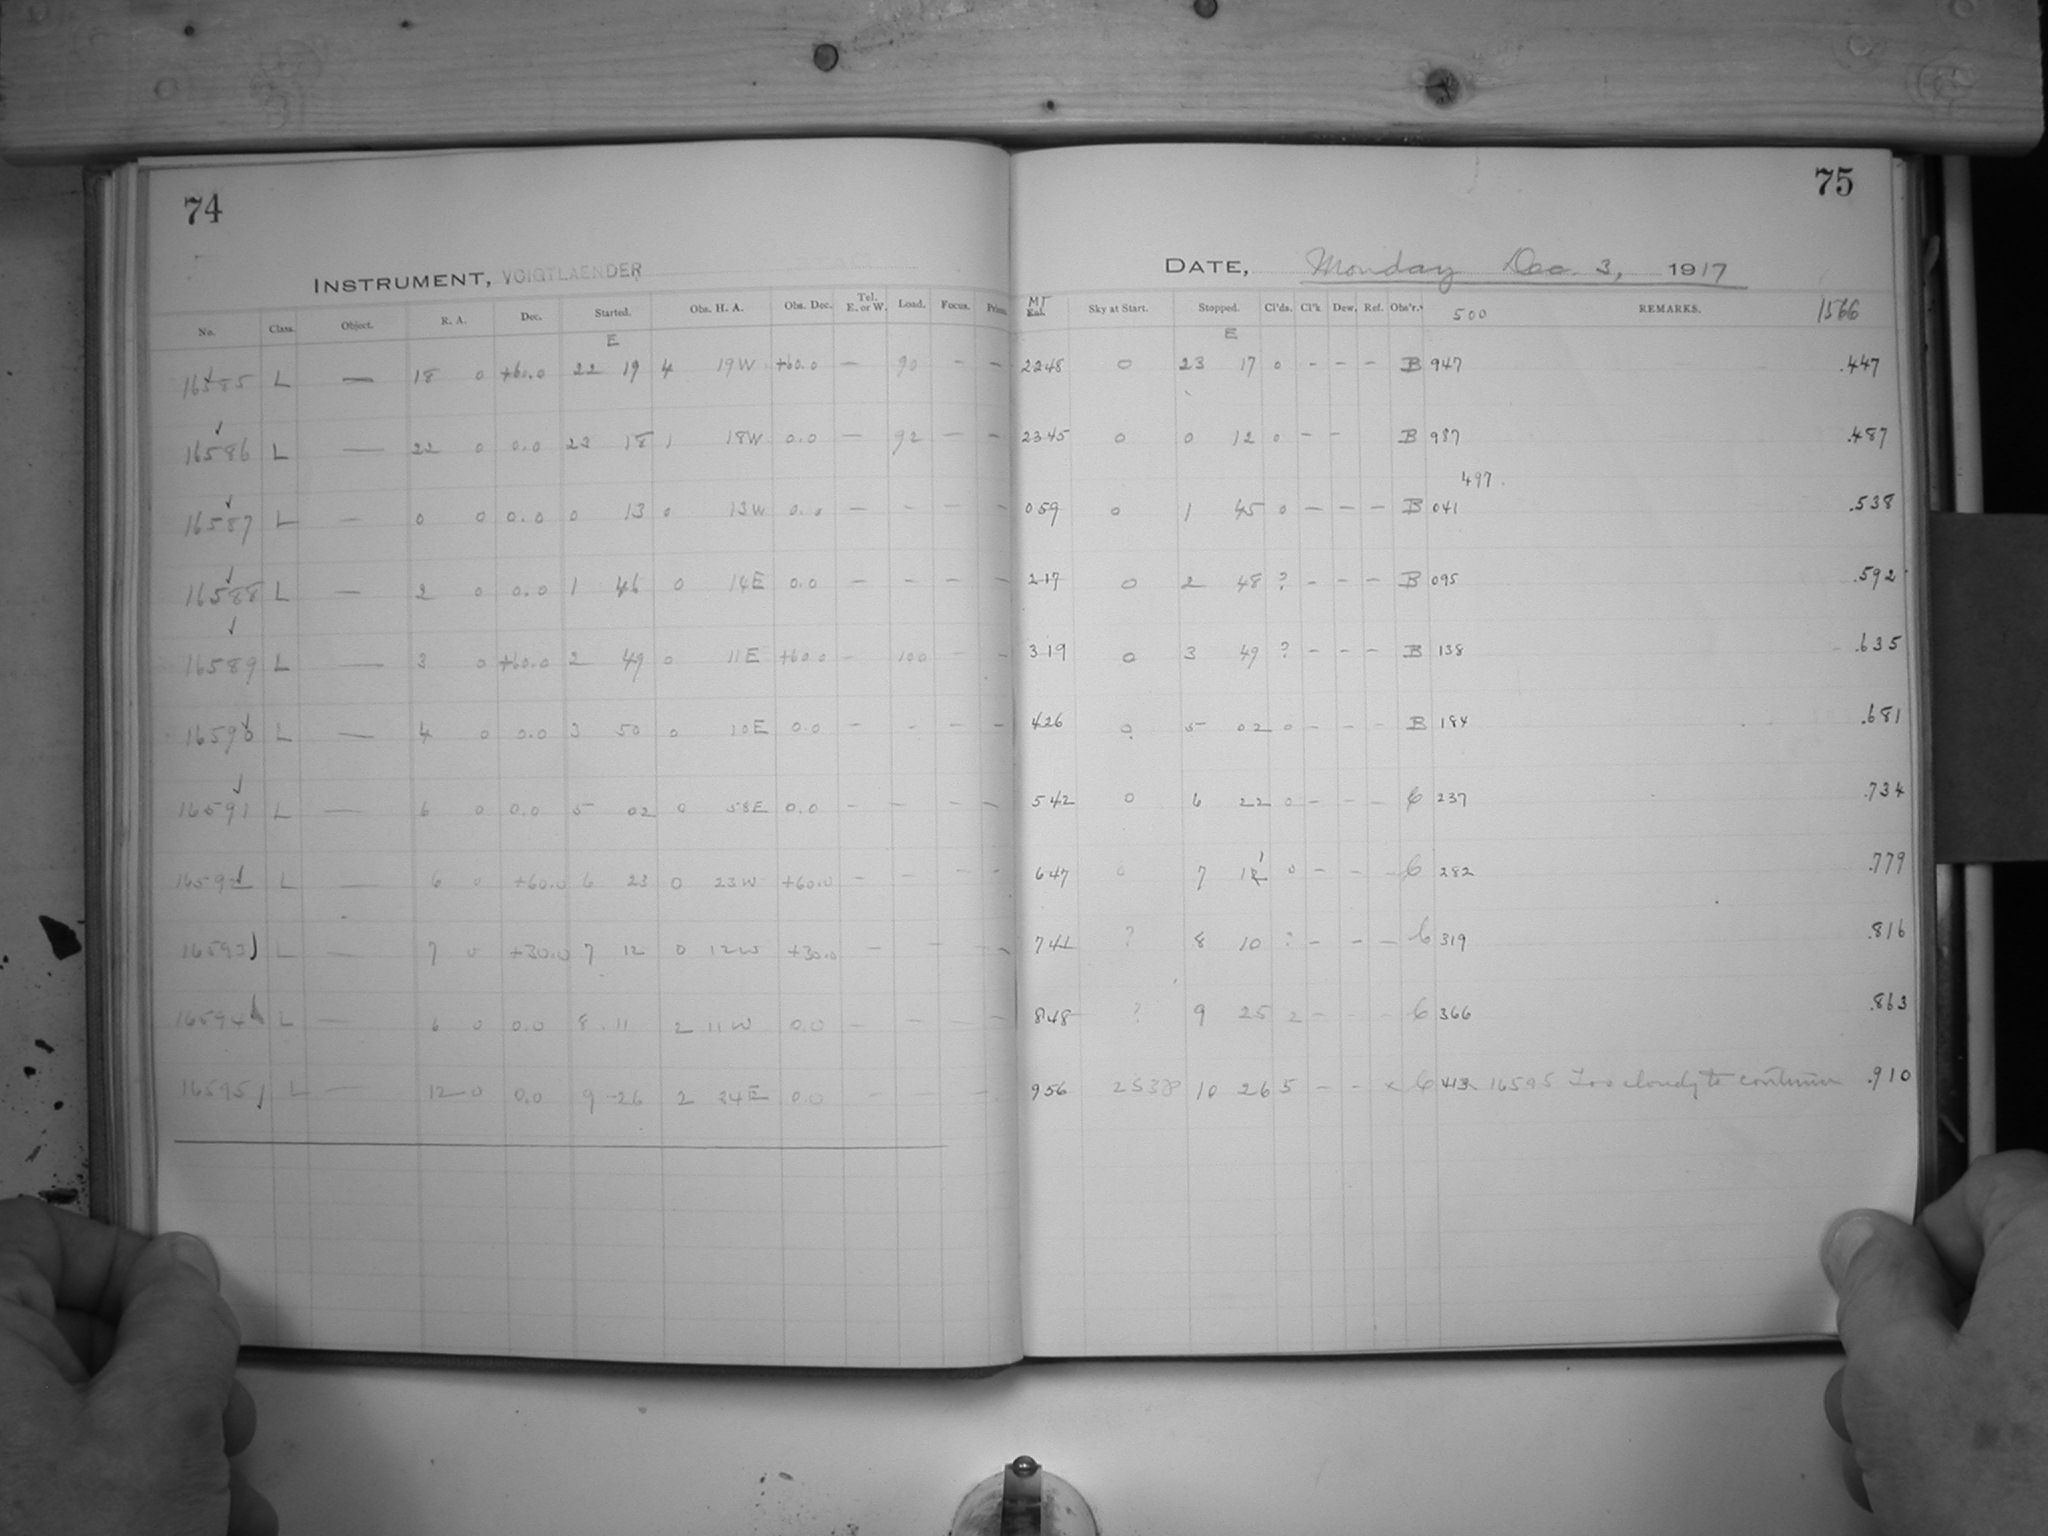 74
INSTRUMENT, VOIGTLAENDER
No. Class. Object. R. A. Dec. Started. Obs. H. A. Obs. Dec. Tel. E. or W. Load. Focus.
E
16585 L — 18 0 +60.0 22 19 4 19W +60.0 — 90 — —
16586 L — 22 0 0.0 23 18 1 18W 0.0 — 92 — —
16587 L — 0 0 0.0 0 13 0 13W 0.0 — — — —
16588 L — 2 0 0.0 1 46 0 14E 0.0 — — — —
16589 L — 3 0 +60.0 2 49 0 11E +60.0 — 100 — —
16590 L — 4 0 0.0 3 50 0 10E 0.0 — — — —
16591 L — 6 0 0.0 5 02 0 58E 0.0 — — — —
16592 L — 6 0 +60.0 6 23 0 23W +60.0 — — — —
16593 L — 7 0 +30.0 7 12 0 12W +30.0 — — —
16594 L — 6 0 0.0 8 11 2 11W 0.0 — — — —
16595 L — 12 0 0.0 9 26 2 34E 0.0 — — — —
75
DATE, Monday Dec. 3, 1917
MT Sky at Start. Stopped. Cl'ds. Cl'k Dew. Ref. Obs'r. 500 REMARKS. 1566
E
2248 0 23 17 0 - - - B 947 .447
2345 0 0 12 0 - - B 987 .487
497.
059 0 1 45 0 - - - B 041 .538
217 0 2 48 ? - - - B 095 .592
319 0 3 49 ? - - - B 138 .635
426 0 5 02 0 - - - B 184 .681
542 0 6 22 0 - - - C 237 .734
647 0 7 11 0 - - - C 282 .779
741 ? 8 10 ? - - - C 319 .816
848 ? 9 25 2 - - - C 366 .863
956 2538 10 26 5 - - x C 413 16595 Too cloudy to continue .910